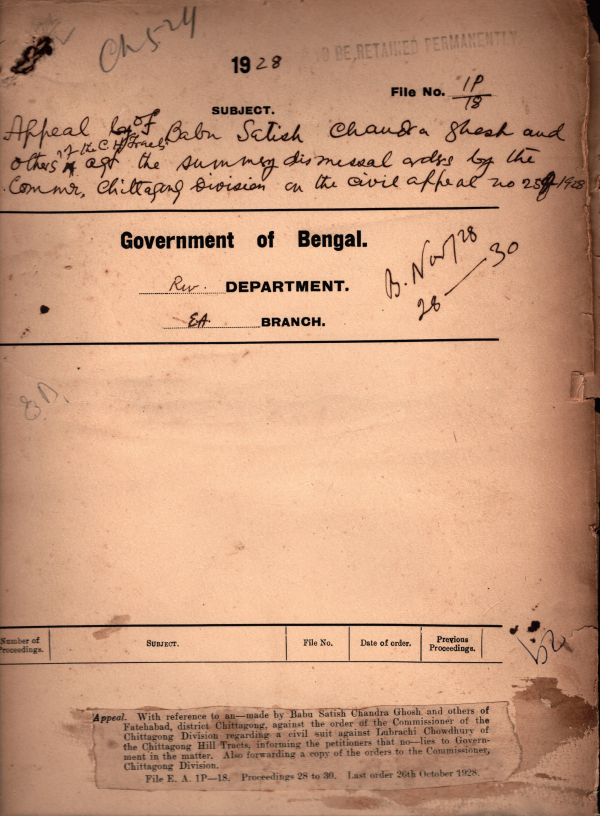 Ch 524
TO BE RETAINED PERMANENTLY
1928
File No. 1P/18
SUBJECT.
Appeal of Babu Satish Chandra Ghosh and
others of the C. H. Tracts agst the summary dismissal order by the
Commr, Chittagong Division on the civil appeal no 28 of 1928
Government of Bengal.
Rev. DEPARTMENT.
EA BRANCH.
B. Nov/28
28 — 30
Number of Proceedings.
SUBJECT.
File No.
Date of order.
Previous Proceedings.
Appeal. With reference to an—made by Babu Satish Chandra Ghosh and others of
Fatehabad, district Chittagong, against the order of the Commissioner of the
Chittagong Division regarding a civil suit against Lubrachi Chowdhury of
the Chittagong Hill Tracts, informing the petitioners that no—lies to Govern-
ment in the matter. Also forwarding a copy of the orders to the Commissioner,
Chittagong Division.
File E. A. 1P—18. Proceedings 28 to 30. Last order 26th October 1928.